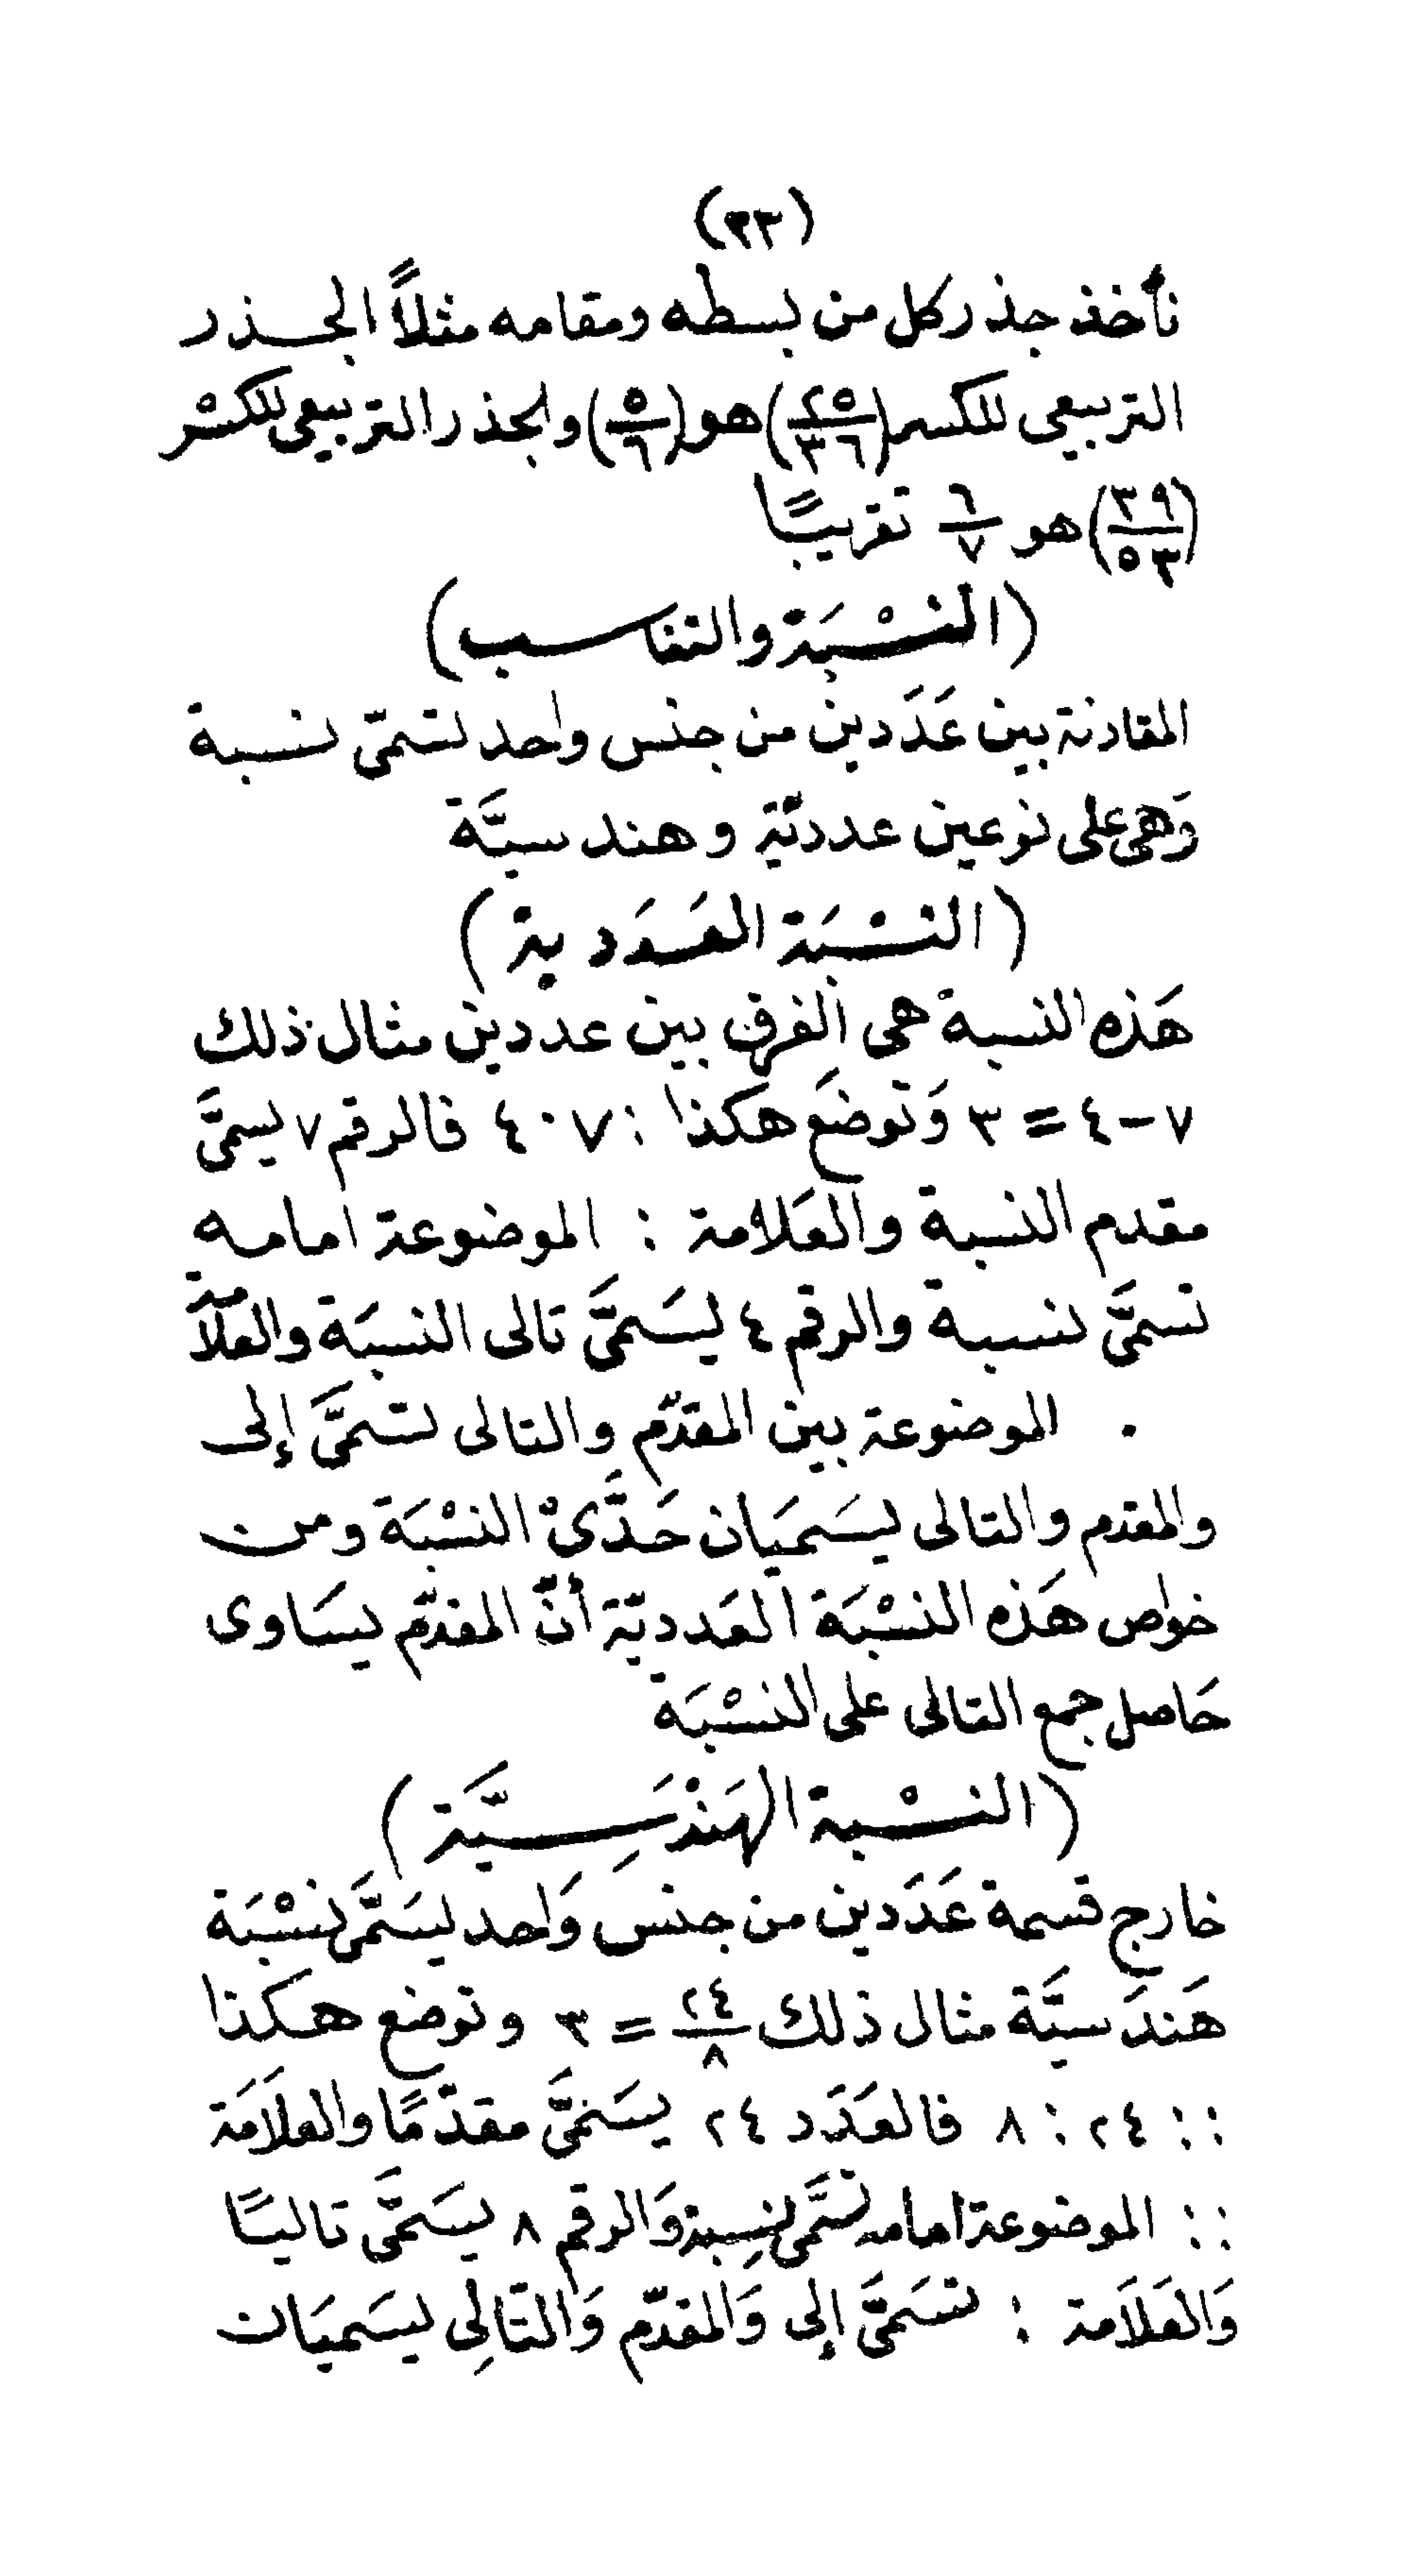 (٣٣)
نأخذ جذر كل من بسطه ومقامه مثلاً الجذر
التربيعى للكسر (٢٥/٣٦) هو (٥/٦) والجذر التربيعى للكسْر
(٣٩/٥٣) هو ٦/٧ تقريبًا
(النسْبَة والتناسب)
المقارنة بين عَدَدين من جنس واحد تسمّى نسبة
وَهى على نوعين عدديّة وهندسيَّة
(النسْبَة العَدَدية)
هَذه النسبة هى الفرق بين عددين مثال ذلك
٧ – ٤ = ٣ وَتوضَع هكذا : ٧ ٠ ٤ فالرقم ٧ يسمىَّ
مقدم النسبة والعَلامة : الموضوعة امامه
تسمىَّ نسبة والرقم ٤ يسَمىَّ تالى النسبَة والعلاَمة
. الموضوعة بين المقدّم والتالى تسَمىَّ إلى
والمقدم والتالى يسَميَان حَدَّىْ النسْبَة ومن
خواص هَذه النسْبَة العَدديّة أنّ المقدّم يسَاوى
حَاصل جمع التالى على النسْبَة
(النسْبة الهَنْدَسِيَّة)
خارج قسمة عَدَدين من جنس وَاحد يسَمَّى نسْبَة
هَندَسيَّة مثال ذلك ٢٤/٨ = ٣ وتوضع هكذا
:: ٢٤ : ٨ فالعَدَد ٢٤ يسَمىَّ مقدّمًا والعلاَمَة
:: الموضوعة امامه تسَمَّى نسِبة وَالرقم ٨ يسَمَّى تاليًا
وَالعَلاَمة : تسَمىَّ إلى وَالمقدّم وَالتَالِى يسَميَان